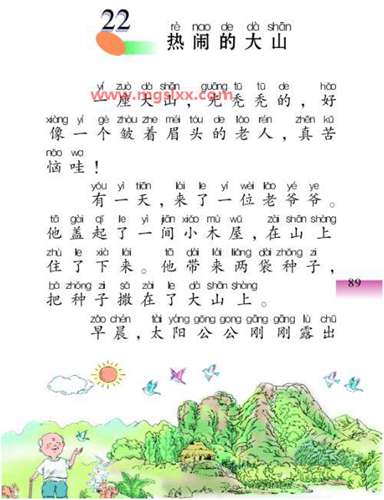 22
rè nao de dà shān
热闹的大山
yí zuò dà shān guāng tū tū de hǎo
www.mgslxx.com
一座大山，光秃秃的，好
xiàng yí gè zhòu zhe méi tóu de lǎo rén zhēn kǔ
像一个皱着眉头的老人，真苦
nǎo wa
恼哇！
yǒu yì tiān lái le yí wèi lǎo yé ye
有一天，来了一位老爷爷。
tā gài qǐ le yì jiān xiǎo mù wū zài shān shàng
他盖起了一间小木屋，在山上
zhù le xià lái tā dài lái liǎng dài zhǒng zi
住了下来。他带来两袋种子，
bǎ zhǒng zi sǎ zài le dà shān shàng
把种子撒在了大山上。
89
zǎo chén tài yáng gōng gong gāng gāng lù chū
早晨，太阳公公刚刚露出